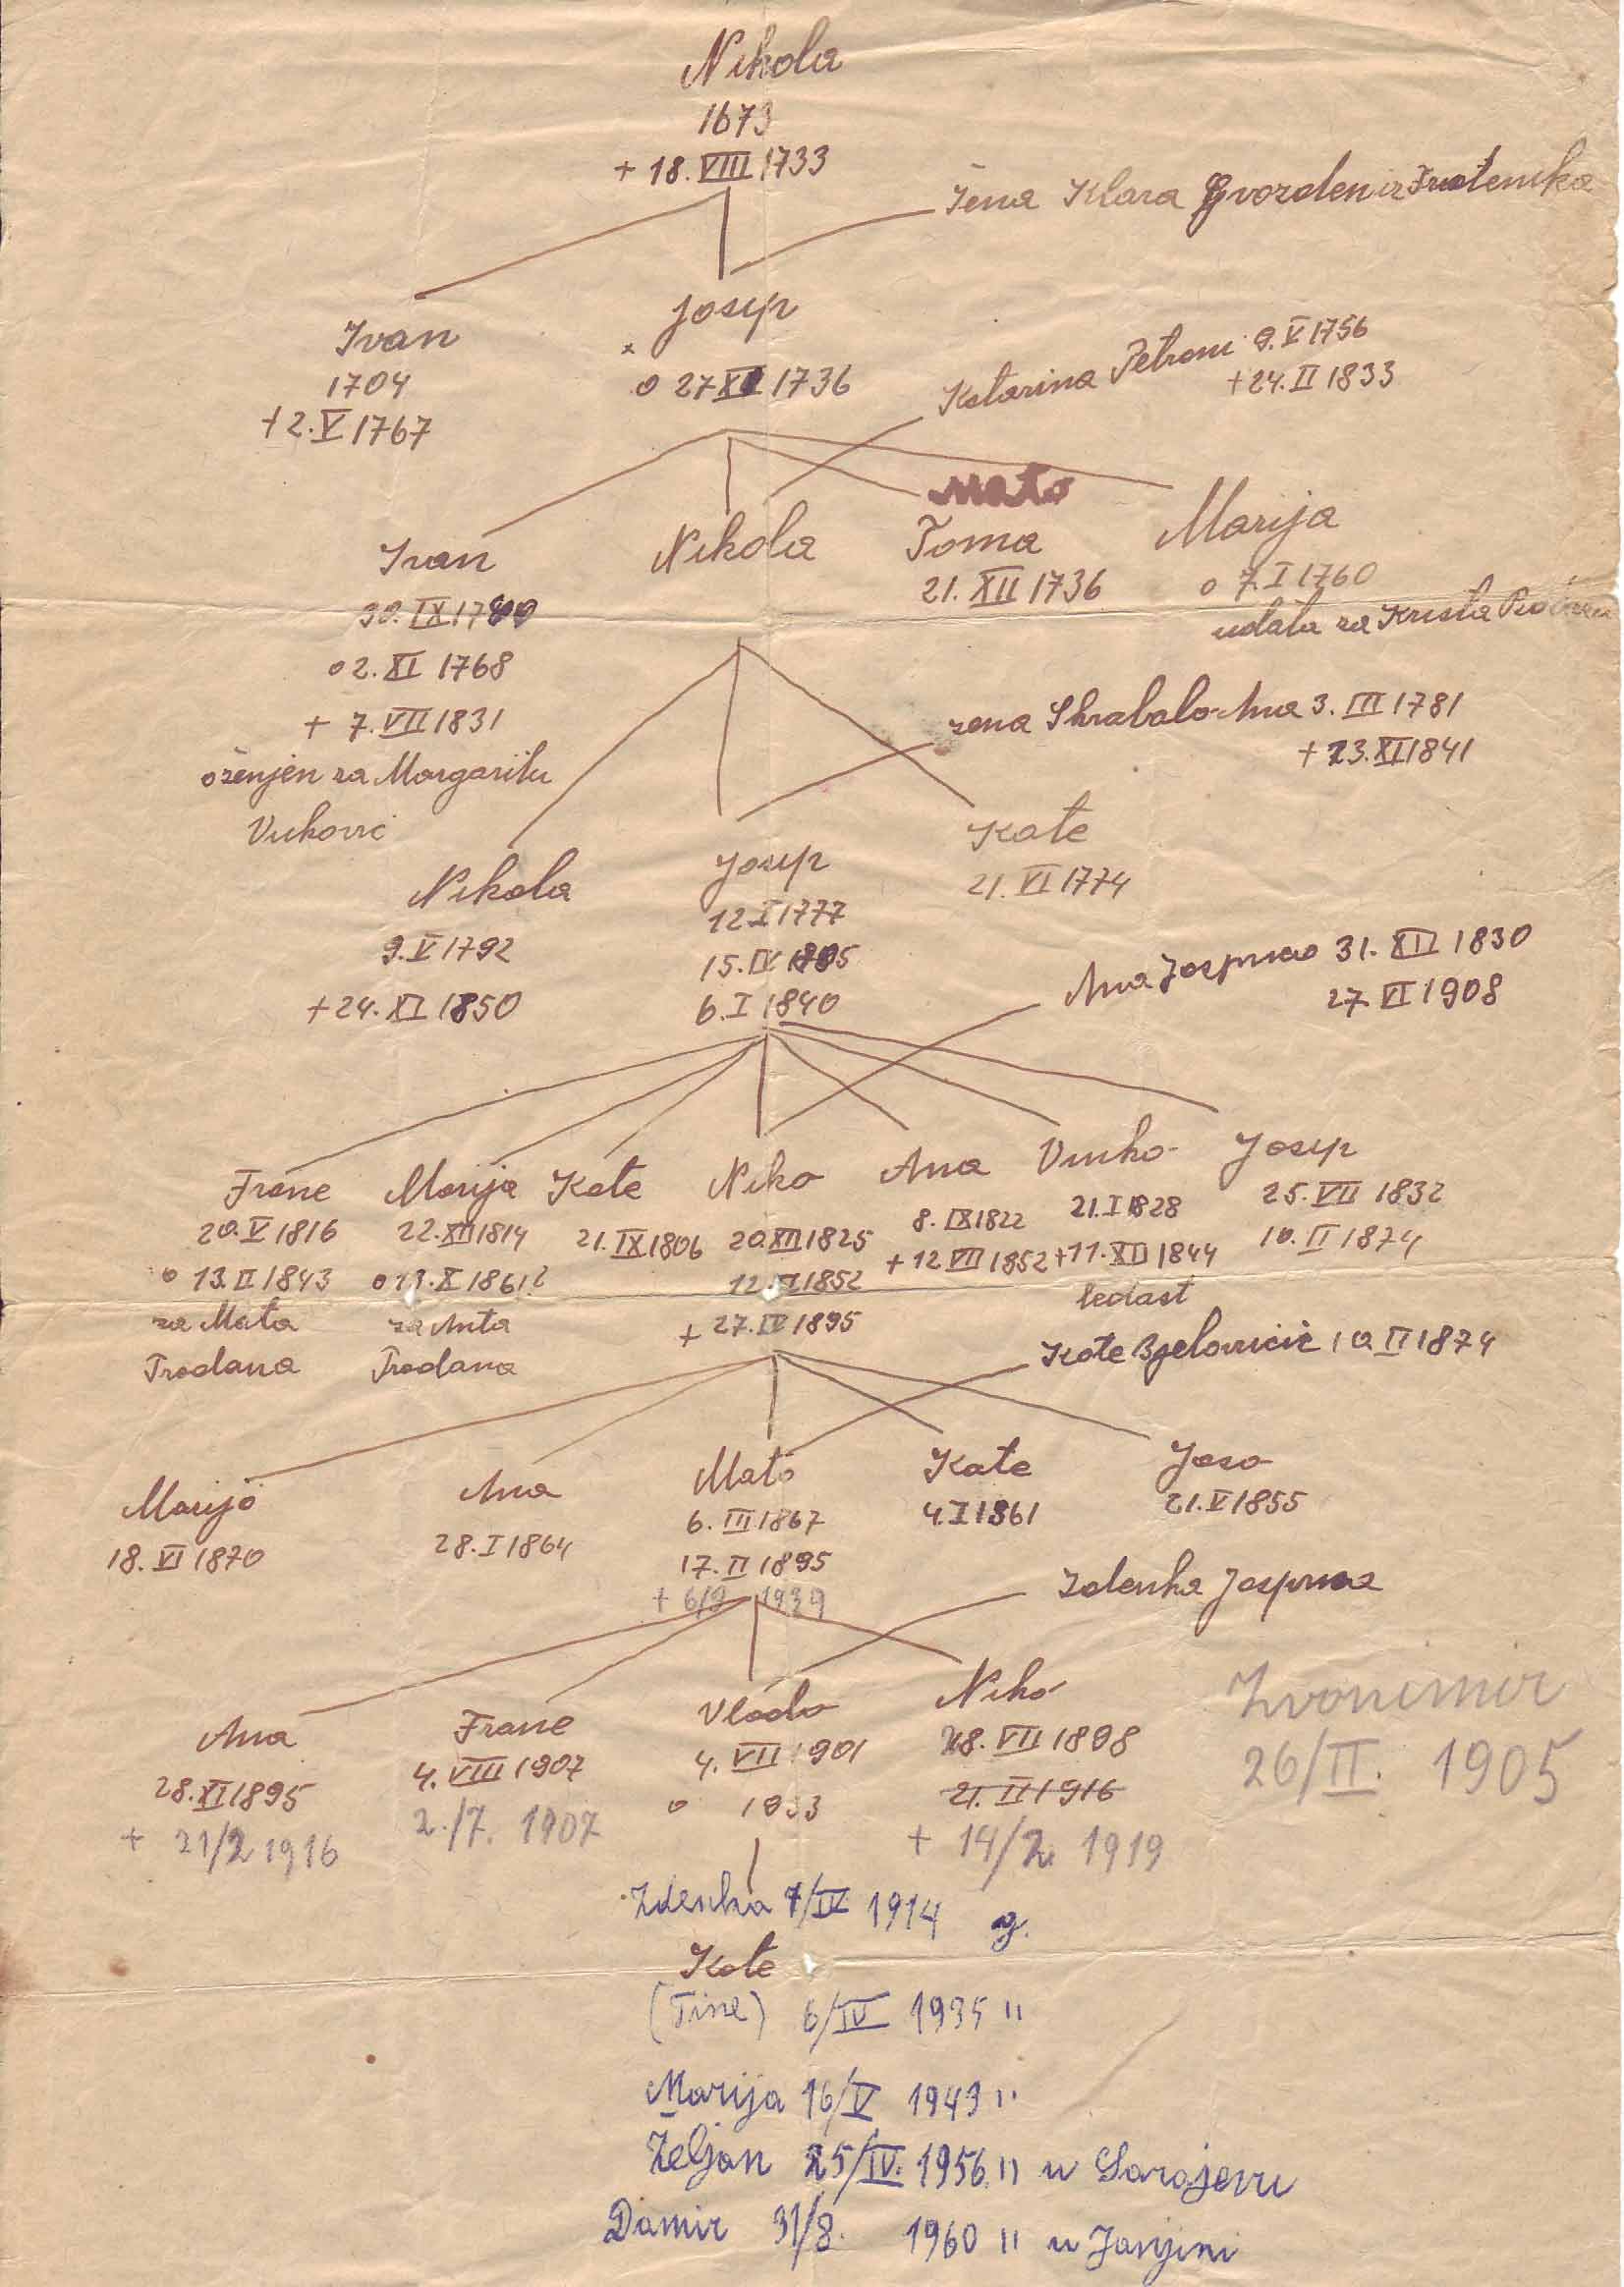 Nikola
1673
+ 18. VIII 1733
Žena Klara Gvozden iz
Ivan
1704
+ 2. V 1767
Josip
x
o 27 1736
Katarina Petrani 9. V 1756
+ 24. II 1833
Ivan
IX
o 2. XI 1768
+ 7. VII 1831
oženjen za Margaritu
Vuković
Nikola
Mato
Toma
21. XII 1736
Marija
o 7. I 1760
udata za Krista
žena Skrabalo Ana 3. III 1781
+ 23. XI 1841
Nikola
9. V 1792
+ 24. XI 1850
Josip
12 I 1777
15. IV 1805
6. I 1840
Kate
21. VI 1774
Ana 31. XII 1830
27. VI 1908
Frane
20. V 1816
o 13. II 1843
za Mata
Trodana
Marija
22. XII 1814
za Anta
Trodana
Kate
21. IX 1806
Niko
20. XII 1825
1852
+ 27. IV 1895
Ana
8. IX 1822
+ 12 VII 1852
Vinko
21. I 1828
+ 11. XII 1844
Josip
25. VII 1832
10. II 1874
Kate Bjelovučić 10 II 1874
Marija
18. VI 1870
Ana
28. I 1864
Mato
6. III 1867
17. II 1895
+ 6/2 1939
Kate
4. I 1861
Joso
21. V 1855
Zdenka
Ana
28. XI 1895
+ 21/2 1916
Frane
4. VIII 1907
2./7. 1907
Vlado
4. VII 1901
o 1933
Niko
28. VII 1898
21. II 1916
+ 14/2 1919
Zvonimir
26/II. 1905
Zdenka 7/IV 1914 g.
Kate
(Tine) 6/IV 1935 "
Marija 16/V 1943 "
Željan 25/IV. 1956 " u Sarajevu
Damir 31/8. 1960 " u Janjini